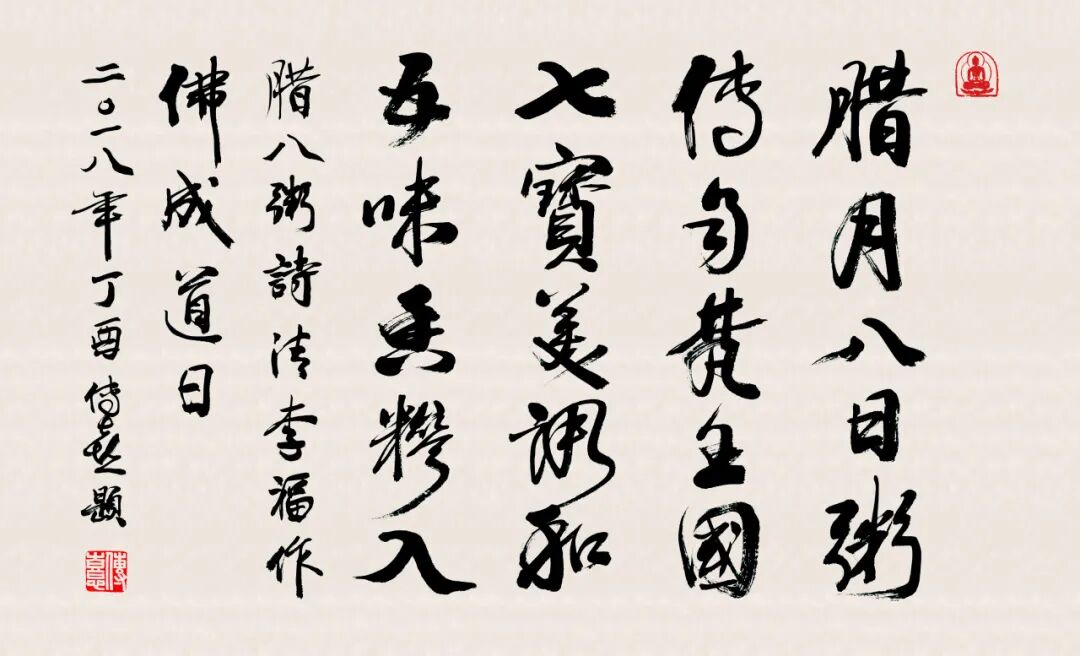 腊月八日粥
傳自梵王國
七寶美調和
五味香糝入
腊八粥詩清李福作
佛成道日
二〇一八年丁酉傳喜題
傳喜